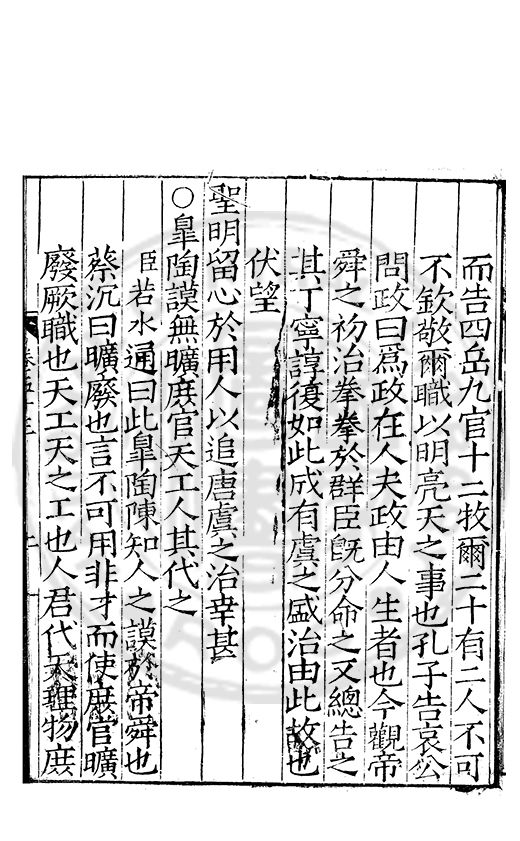 而告四岳九官十二牧爾二十有二人不可
不欽敬爾職以明亮天之事也孔子告哀公
問政曰爲政在人夫政由人生者也今觀帝
舜之初治拳拳於群臣旣分命之又總告之
其丁寧諄復如此成有虞之盛治由此故也
伏望
聖明留心於用人以追唐虞之治幸甚
○臯陶謨無曠庶官天工人其代之
臣若水通曰此臯陶陳知人之謨於帝舜也
蔡沉曰曠廢也言不可用非才而使庶官曠
廢厥職也天工天之工也人君代天理物庶